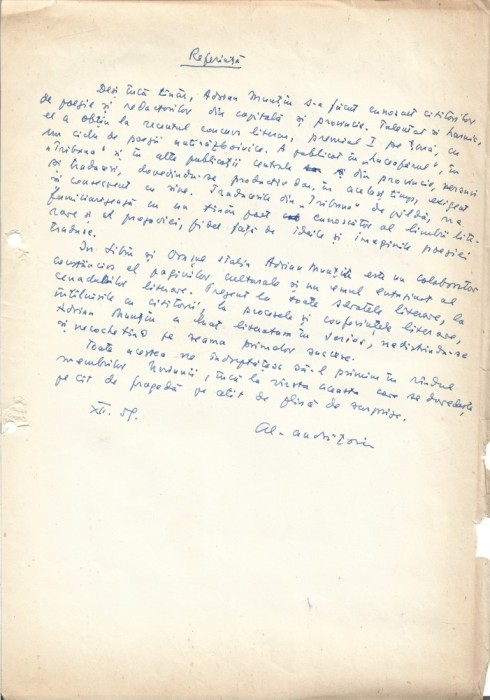 Referință
Deși încă tânăr, Adrian Munțiu s-a făcut cunoscut cititorilor
de poezie și redactorilor din capitală și provincie. Talentat și harnic,
el a obținut la recentul concurs literar, premiul I pe țară, cu
un ciclu de poezii antirăzboinice. A publicat în "Luceafărul", în
"Tribuna" și în alte publicații centrale și din provincie, versuri
și traduceri, dovedindu-se productiv dar, în același timp, exigent
și consecvent cu sine. Traducerile din "Tribuna" de pildă, ne
familiarizează cu un tânăr poet cunoscător al limbii
rare și al prozodiei, fidel față de ideile și imaginile poeziei
traduse.
În Sibiu și Orașul Stalin Adrian Munțiu este un colaborator
conștiincios al paginilor culturale și un emul entuziast al
cenaclurilor literare. Prezent la toate șezătorile literare, la
întîlnirile cu cititorii, la procesele și conferințele literare,
Adrian Munțiu a luat literatura în serios,
și necochetînd pe seama primelor succese.
Toate acestea ne îndreptățesc să-l primim în rîndul
membrilor, încă la vîrsta aceasta care se dovedește
pe cît de fragedă pe atît de plină de surprize.
XII. 59.
Al.